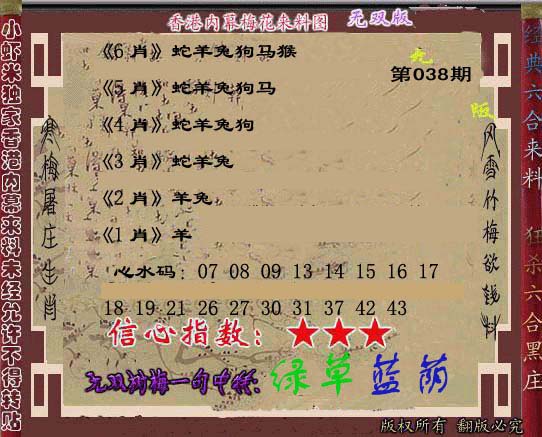 香港内幕梅花来料图 无双版
第038期
无
版
《6 肖》蛇羊兔狗马猴
《5 肖》蛇羊兔狗马
《4 肖》蛇羊兔狗
《3 肖》蛇羊兔
《2 肖》羊兔
《1 肖》羊
心水码： 07 08 09 13 14 15 16 17
18 19 21 26 27 30 31 37 42 43
信心指数：★★★
绿草蓝荫
小虾米独家香港内幕来料未经允许不得转贴
寒梅屠庄生肖
风雪竹梅欲钱料
经典六合来料
狂杀六合黑庄
版权所有 翻版必究